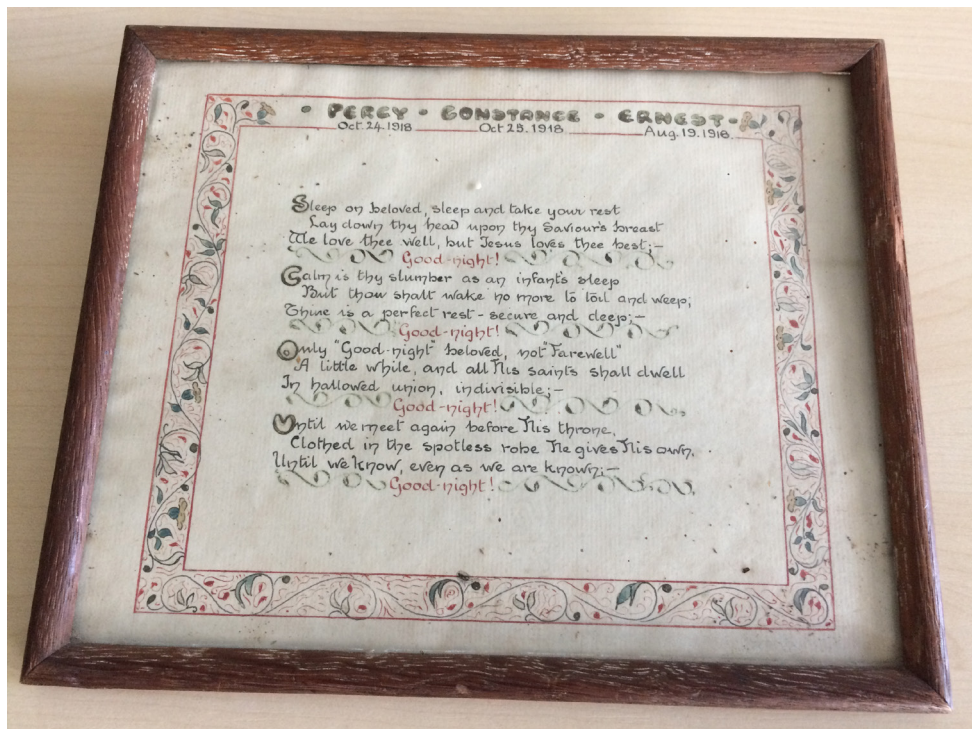 • PERCY • CONSTANCE • ERNEST •
Oct. 24. 1918 Oct 25. 1918 Aug. 19. 1918.
Sleep on beloved, sleep and take your rest
Lay down thy head upon thy Saviour's breast
We love thee well, but Jesus loves thee best;—
Good-night!
Calm is thy slumber as an infant's sleep
But thou shalt wake no more to toil and weep;
Thine is a perfect rest - secure and deep;—
Good-night!
Only "Good-night" beloved, not "Farewell"
A little while, and all His saints shall dwell
In hallowed union, indivisible;—
Good-night!
Until we meet again before His throne,
Clothed in the spotless robe He gives His own,
Until we know, even as we are known;—
Good-night!